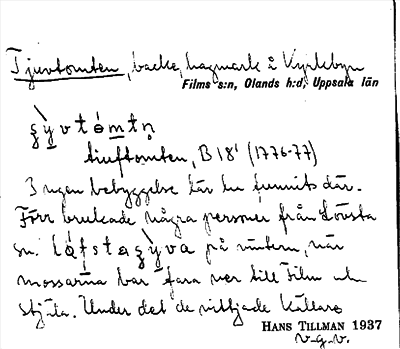 Tjuvtomten, backe, hagmark å Kyrkbyn
Films s:n, Olands h:d, Uppsala län
tiuftomten, B 18¹ (1776-77)
Ingen bebyggelse lär ha funnits där.
Förr brukade några personer från Lövsta
sn. på vintern, när
mossarna bar fara ner till Film och
stjäla. Under det de nittjade källare
HANS TILLMAN 1937
v.g.v.